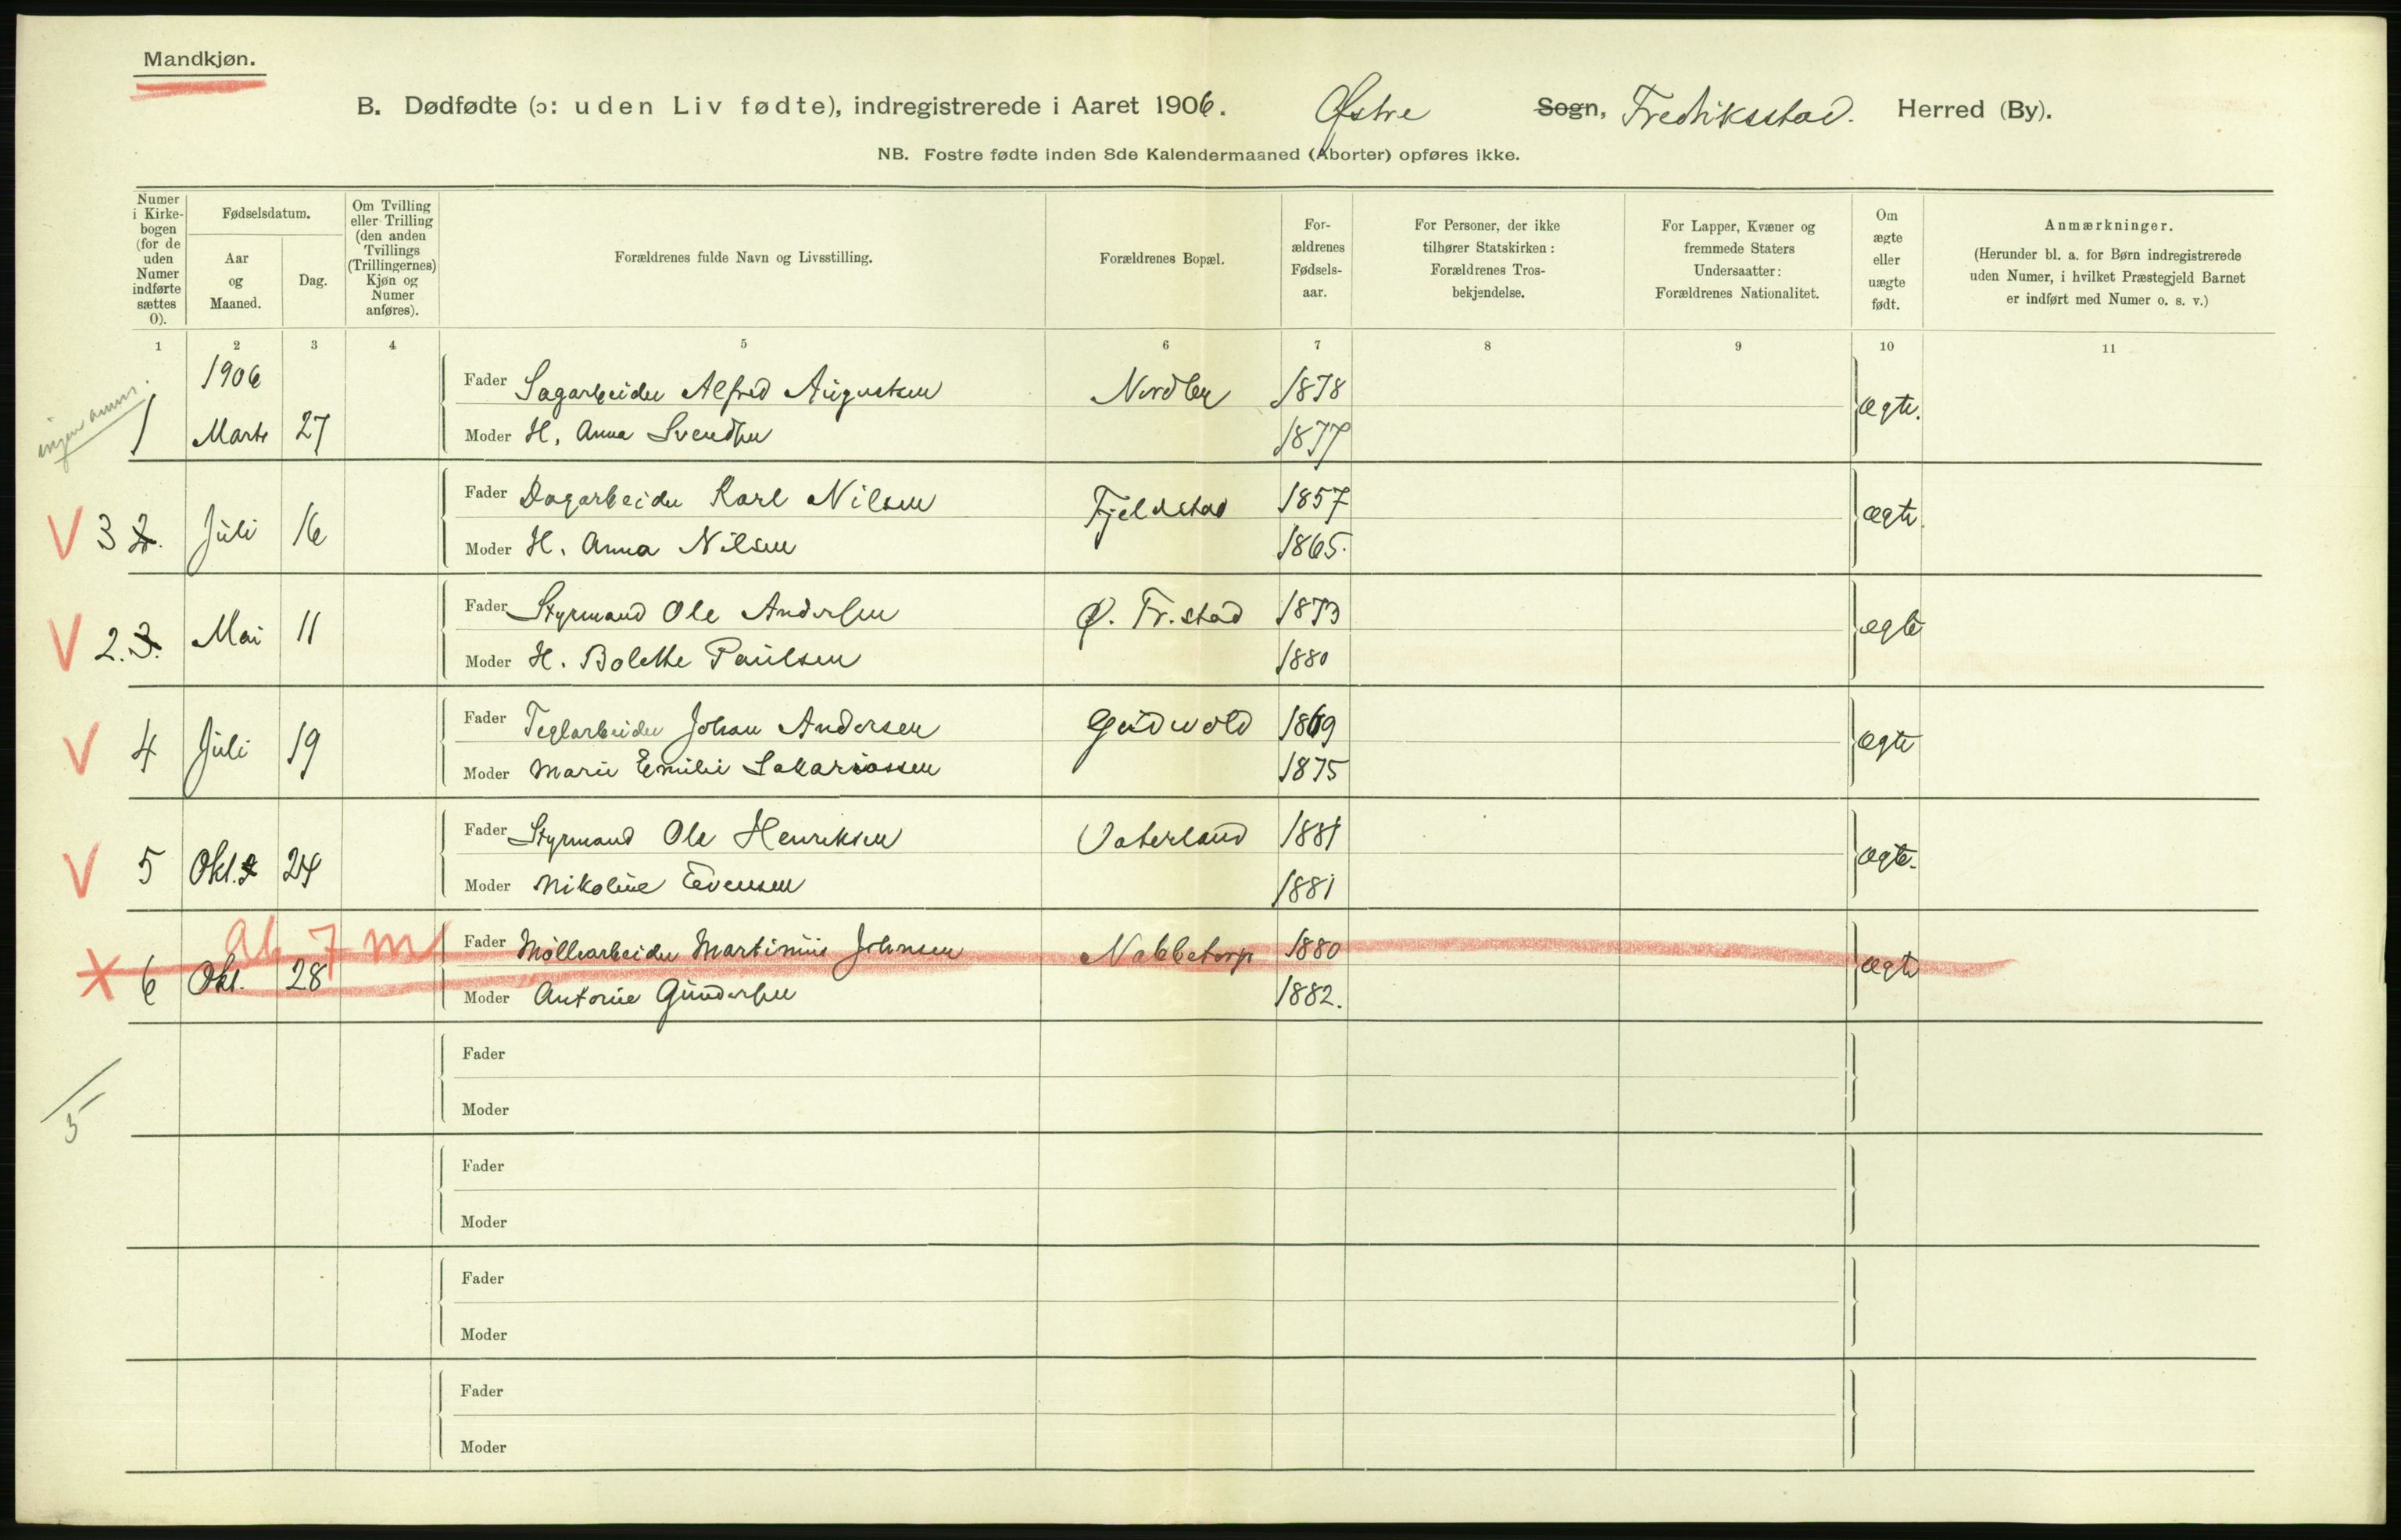 Mandkjøn.
B. Dødfødte (ɔ: uden Liv fødte), indregistrerede i Aaret 1906. Østre Sogn, Fredriksstad. Herred (By).
NB. Fostre fødte inden 8de Kalendermaaned (Aborter) opføres ikke.
Numer i Kirke-bogen (for de uden Numer indførte sættes 0).
Fødselsdatum.
Aar og Maaned.
Dag.
Om Tvilling eller Trilling (den anden Tvillings (Trillingernes) Kjøn og Numer anføres).
Forældrenes fulde Navn og Livsstilling.
Forældrenes Bopæl.
For-ældrenes Fødsels-aar.
For Personer, der ikke tilhører Statskirken: Forældrenes Tros-bekjendelse.
For Lapper, Kvæner og fremmede Staters Undersaatter: Forældrenes Nationalitet.
Om ægte eller uægte født.
Anmærkninger.
(Herunder bl. a. for Børn indregistrerede uden Numer, i hvilket Præstegjeld Barnet er indført med Numer o. s. v.)
1 2 3 4 5 6 7 8 9 10 11
1906
ingen anm.
Fader Sagarbeider Alfred Augustsen Nordby 1878
1 Marts 27 ægte.
Moder H. Anna Svendsen 1877
Fader Dagarbeider Karl Nilsen Fjeldstad 1857
V 3 2. Juli 16 ægte
Moder H. Anna Nilsen 1865.
Fader Styrmand Ole Andersen Ø. Fr.stad 1873
V 2. 3. Mai 11 ægte
Moder H. Bolette Paulsen 1880
Fader Teglarbeider Johan Andersen Gudvold 1869
V 4 Juli 19 ægte
Moder Marie Emilie Sakariassen 1875
Fader Styrmand Ole Henriksen Vaterland 1881
V 5 Okt. 24 ægte.
Moder Nikoline Evensen 1881
Ab 7 m
Fader Møllearbeider Martinius Johnsen Nabbetorp 1880
6 Okt. 28 ægte
Moder Antonie Gundersen 1882.
Fader
Moder
5
Fader
Moder
Fader
Moder
Fader
Moder